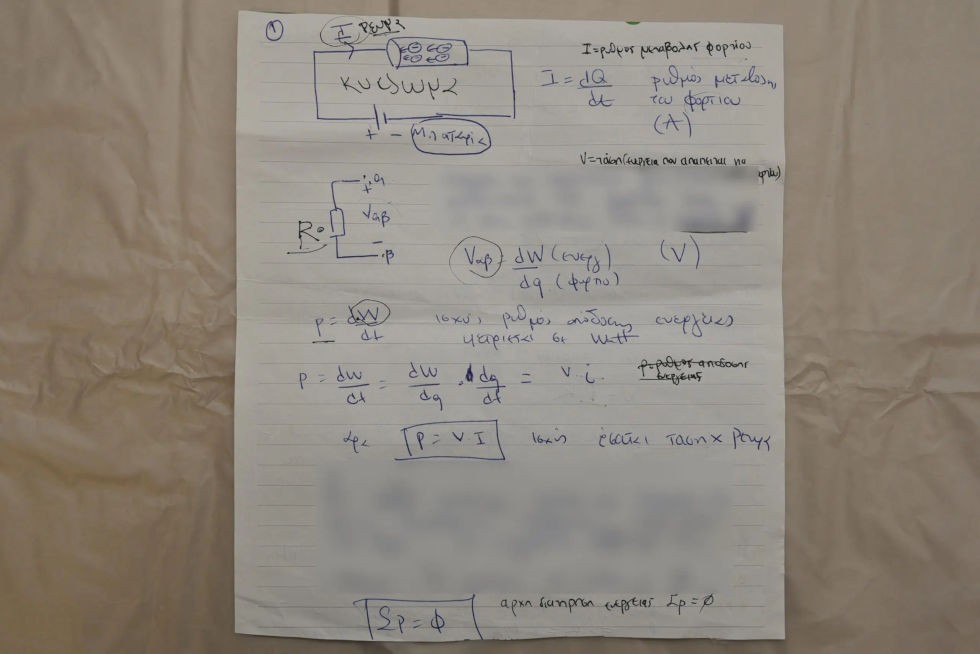 ①
I ρευμα
κυκλωμα
+ - Μπαταρία
I = ρυθμος μεταβολης φορτιου
I = dQ/dt ρυθμός μεταβολης
του φορτιου
(A)
V = τάση (ενεργεια που απαιτειται να
+ α
R Vαβ
- β
Vαβ = dW (ενεργ) / dq (φορτιο) (V)
p = dW/dt ισχύς ρυθμός απόδοσης ενεργείας
μετριεται σε Watt
p = dW/dt = dW/dq · dq/dt = v · i.
p = ρυθμος αποδοσης
ενεργειας
αρα P = V I ισχύς ταση x ρευμα
Σp = φ
αρχη διατηρηση ενεργειας Σp = φ